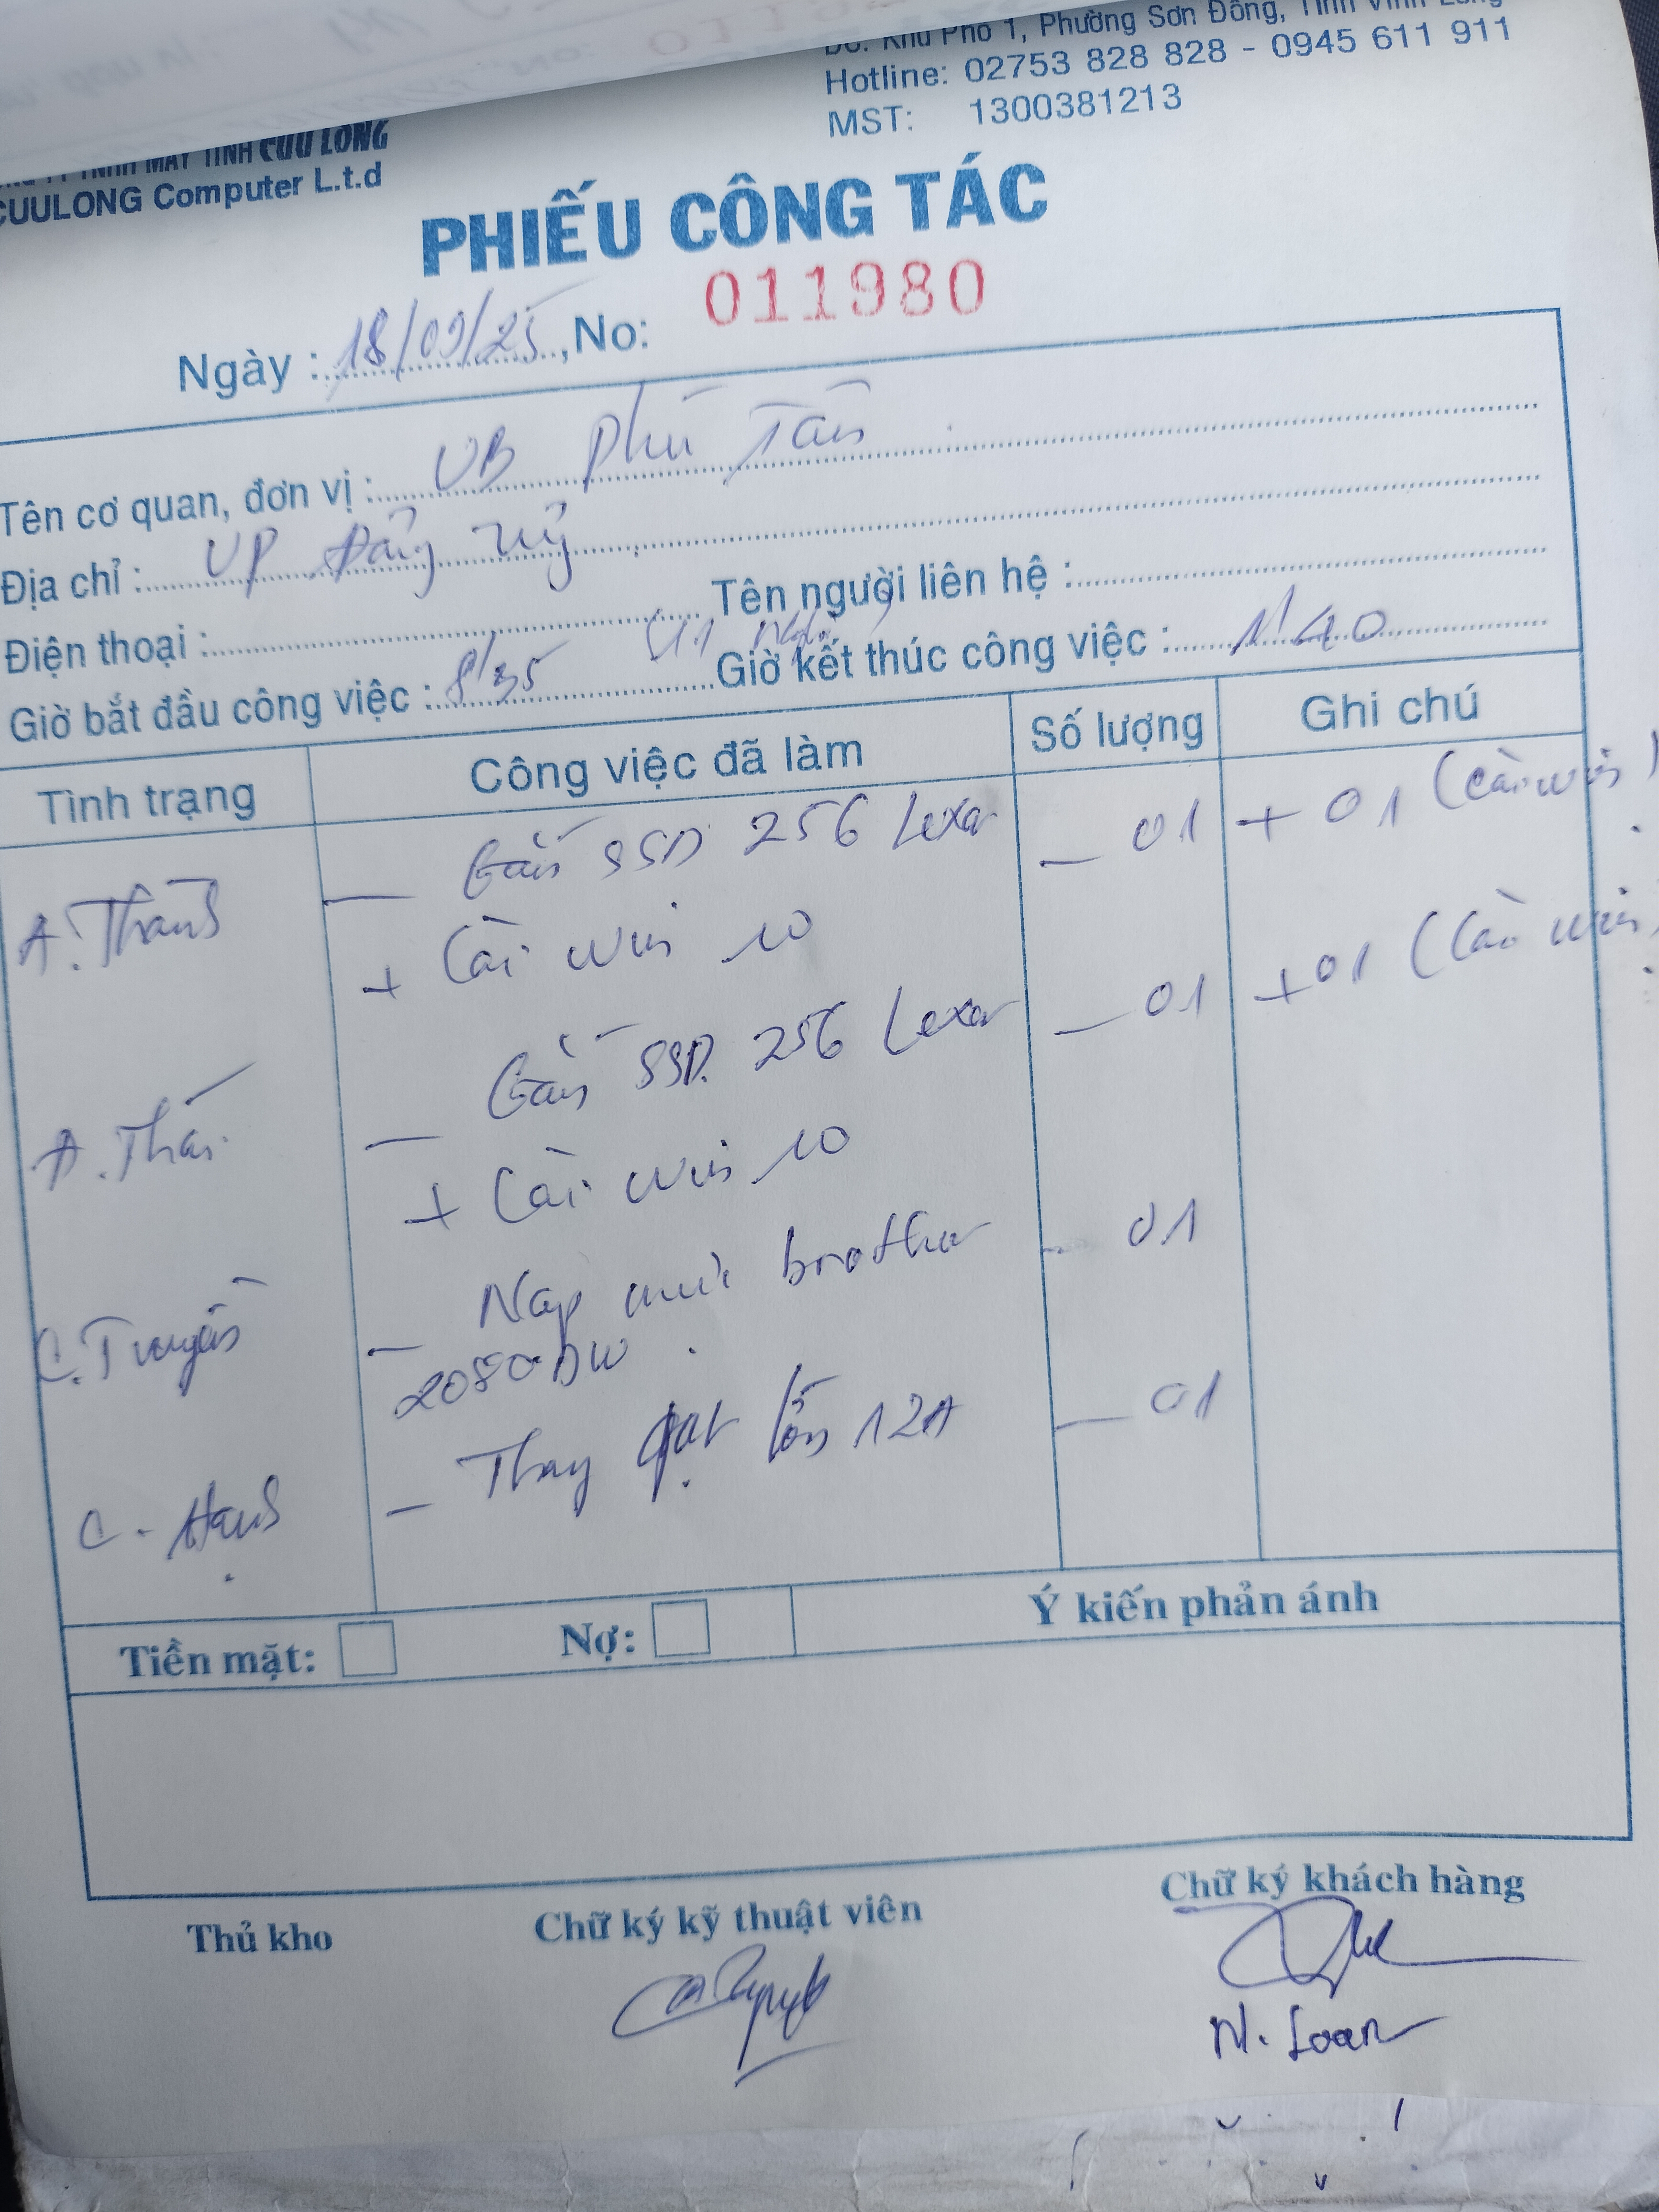 ĐC: Khu Phố 1, Phường Sơn Đông, Tỉnh Vĩnh Long
Hotline: 02753 828 828 - 0945 611 911
MST: 1300381213
TNHH MÁY TÍNH CỬU LONG
CUULONG Computer L.t.d
PHIẾU CÔNG TÁC
Ngày : 18/09/25, No: 011980
Tên cơ quan, đơn vị : UB Phú Tân
Địa chỉ : VP Đảng Uỷ
Điện thoại : Tên người liên hệ :
Giờ bắt đầu công việc : 8/35 Giờ kết thúc công việc : 11/40
Tình trạng Công việc đã làm Số lượng Ghi chú
A. Thanh - Gắn SSD 256 Lexar - 01 + 01 (Cài win)
+ Cài win 10
A. Thái - Gắn SSD. 256 Lexar - 01 + 01 (Cài win)
+ Cài win 10
C. Truyền - Nạp mực brother - 01
2080DW.
C. Hạnh - Thay gạt lớn 12A - 01
Tiền mặt: Nợ: Ý kiến phản ánh
Thủ kho Chữ ký kỹ thuật viên Chữ ký khách hàng
N. Loan